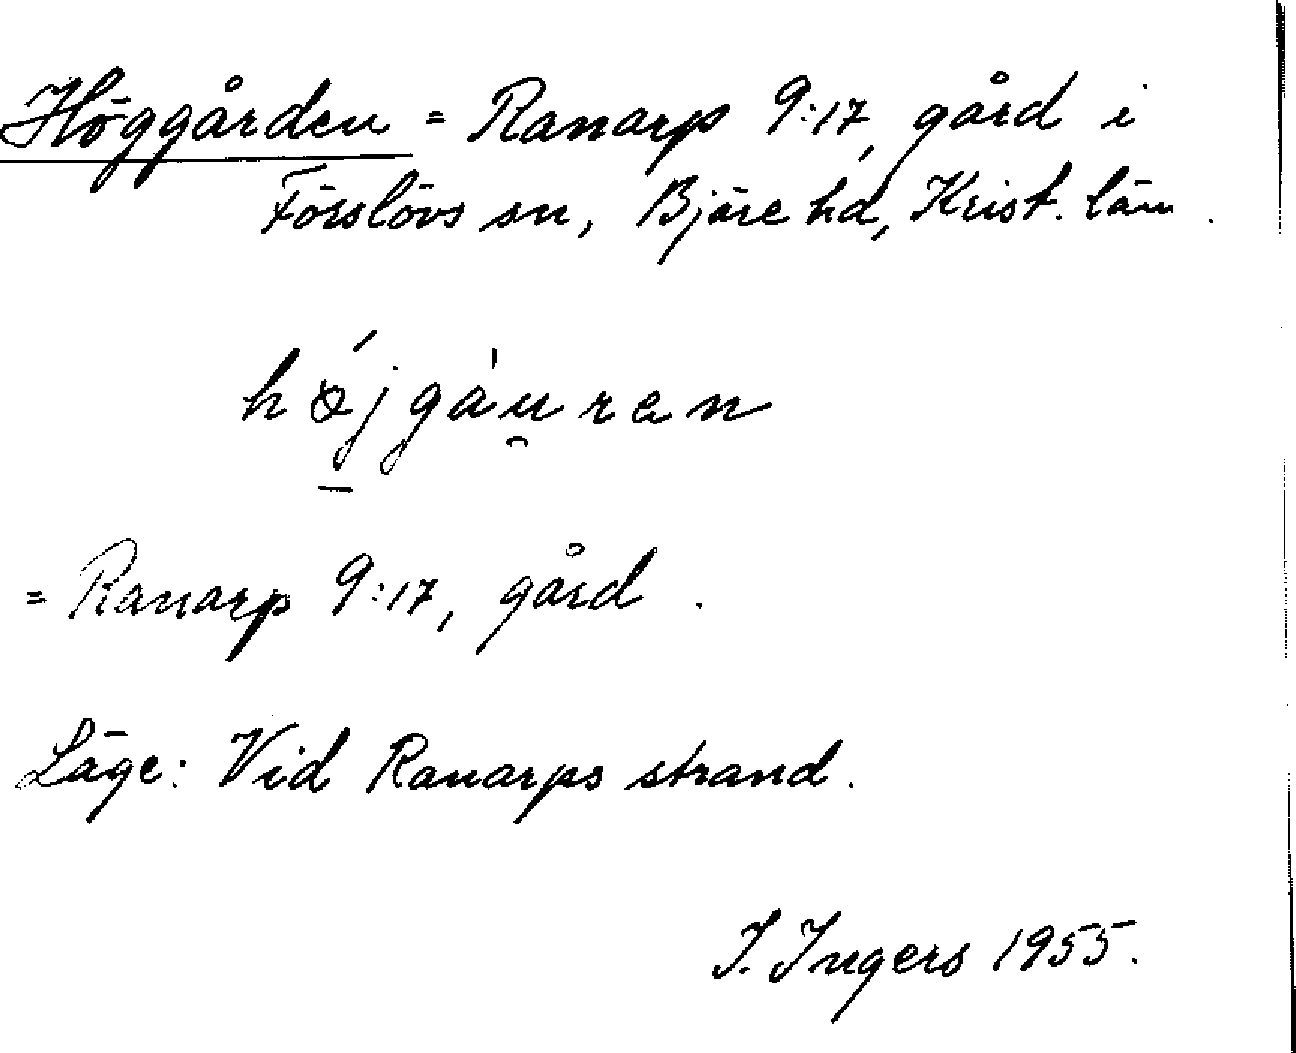 Höggården = Ranarp 9:17, gård i
Förslövs sn, Bjäre hd, Krist. län.
hǿjgàu̯ren
= Ranarp 9:17, gård.
Läge: Vid Ranarps strand.
I. Ingers 1955.